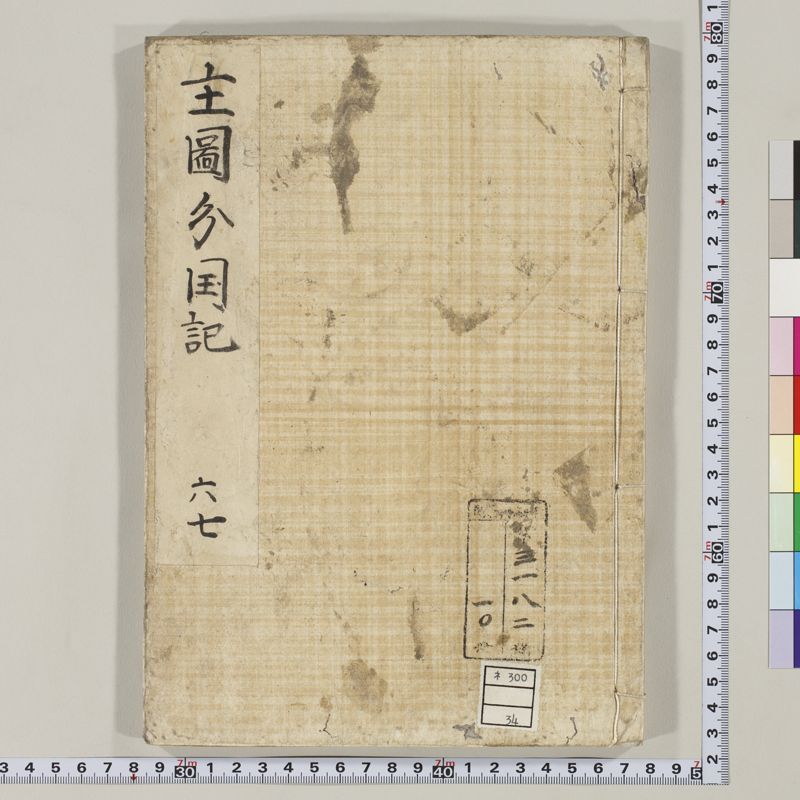 主圖分囯記
六七
三一八二
一〇
ネ 300
34